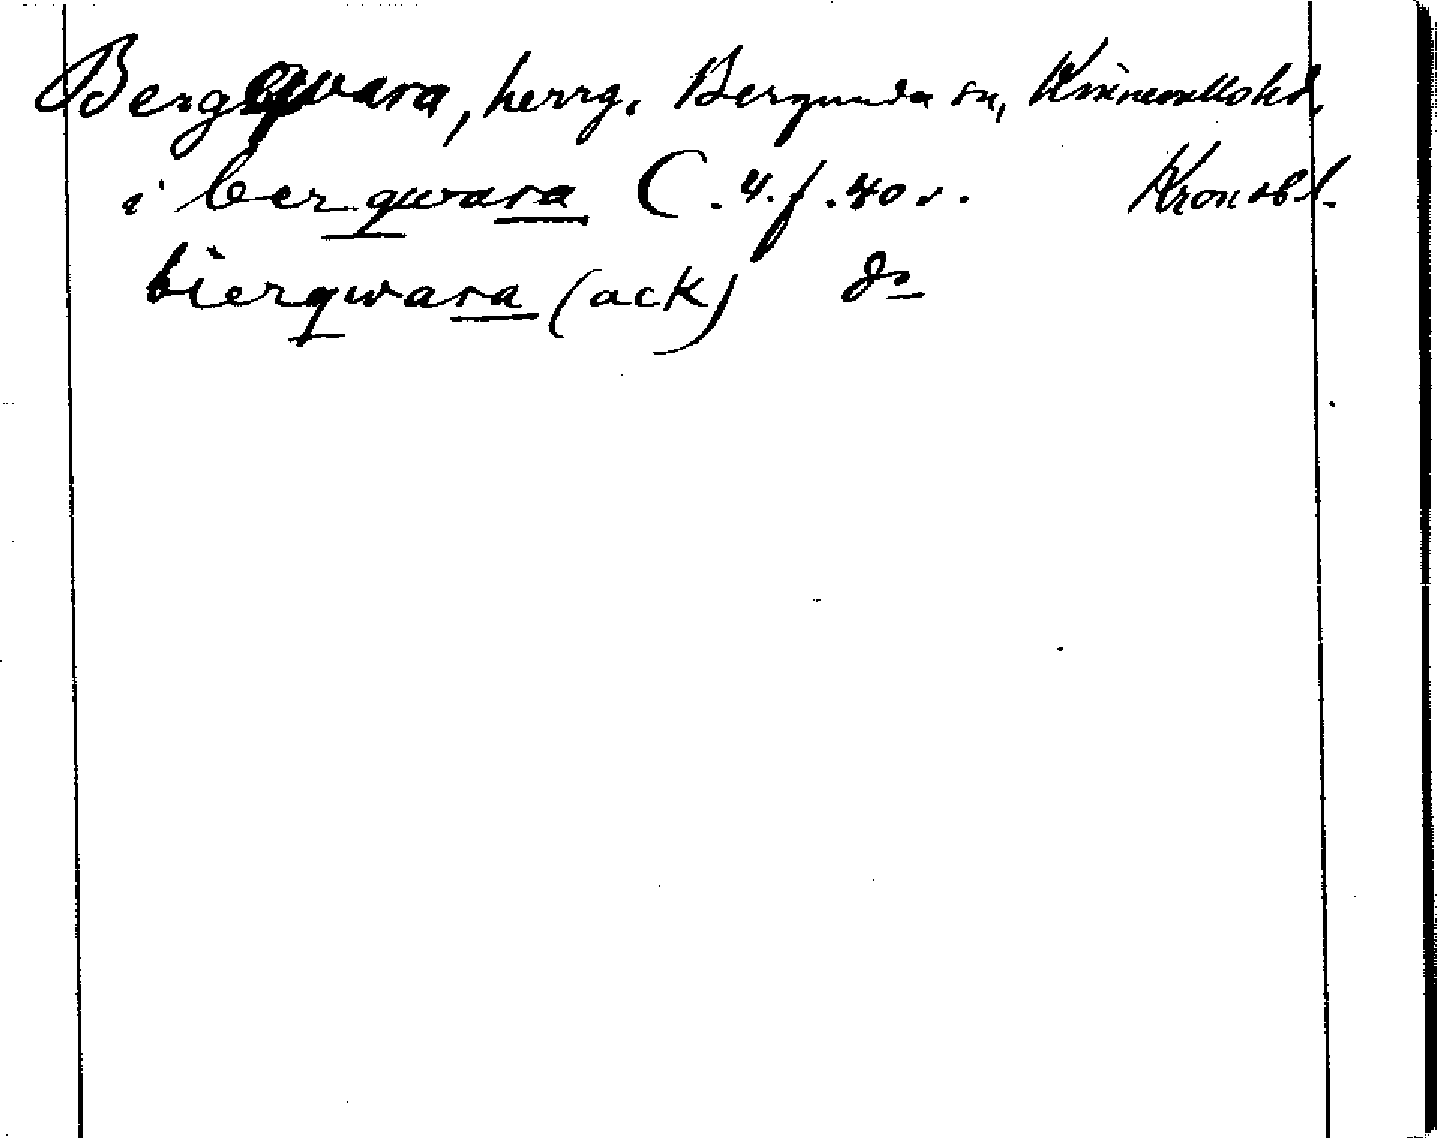 Bergqwara, herrg. Bergunda sn, Kinnevalds hd.
i berqwara C. 4. f. 40 v. Kronobl.
bierqwara (ack) do